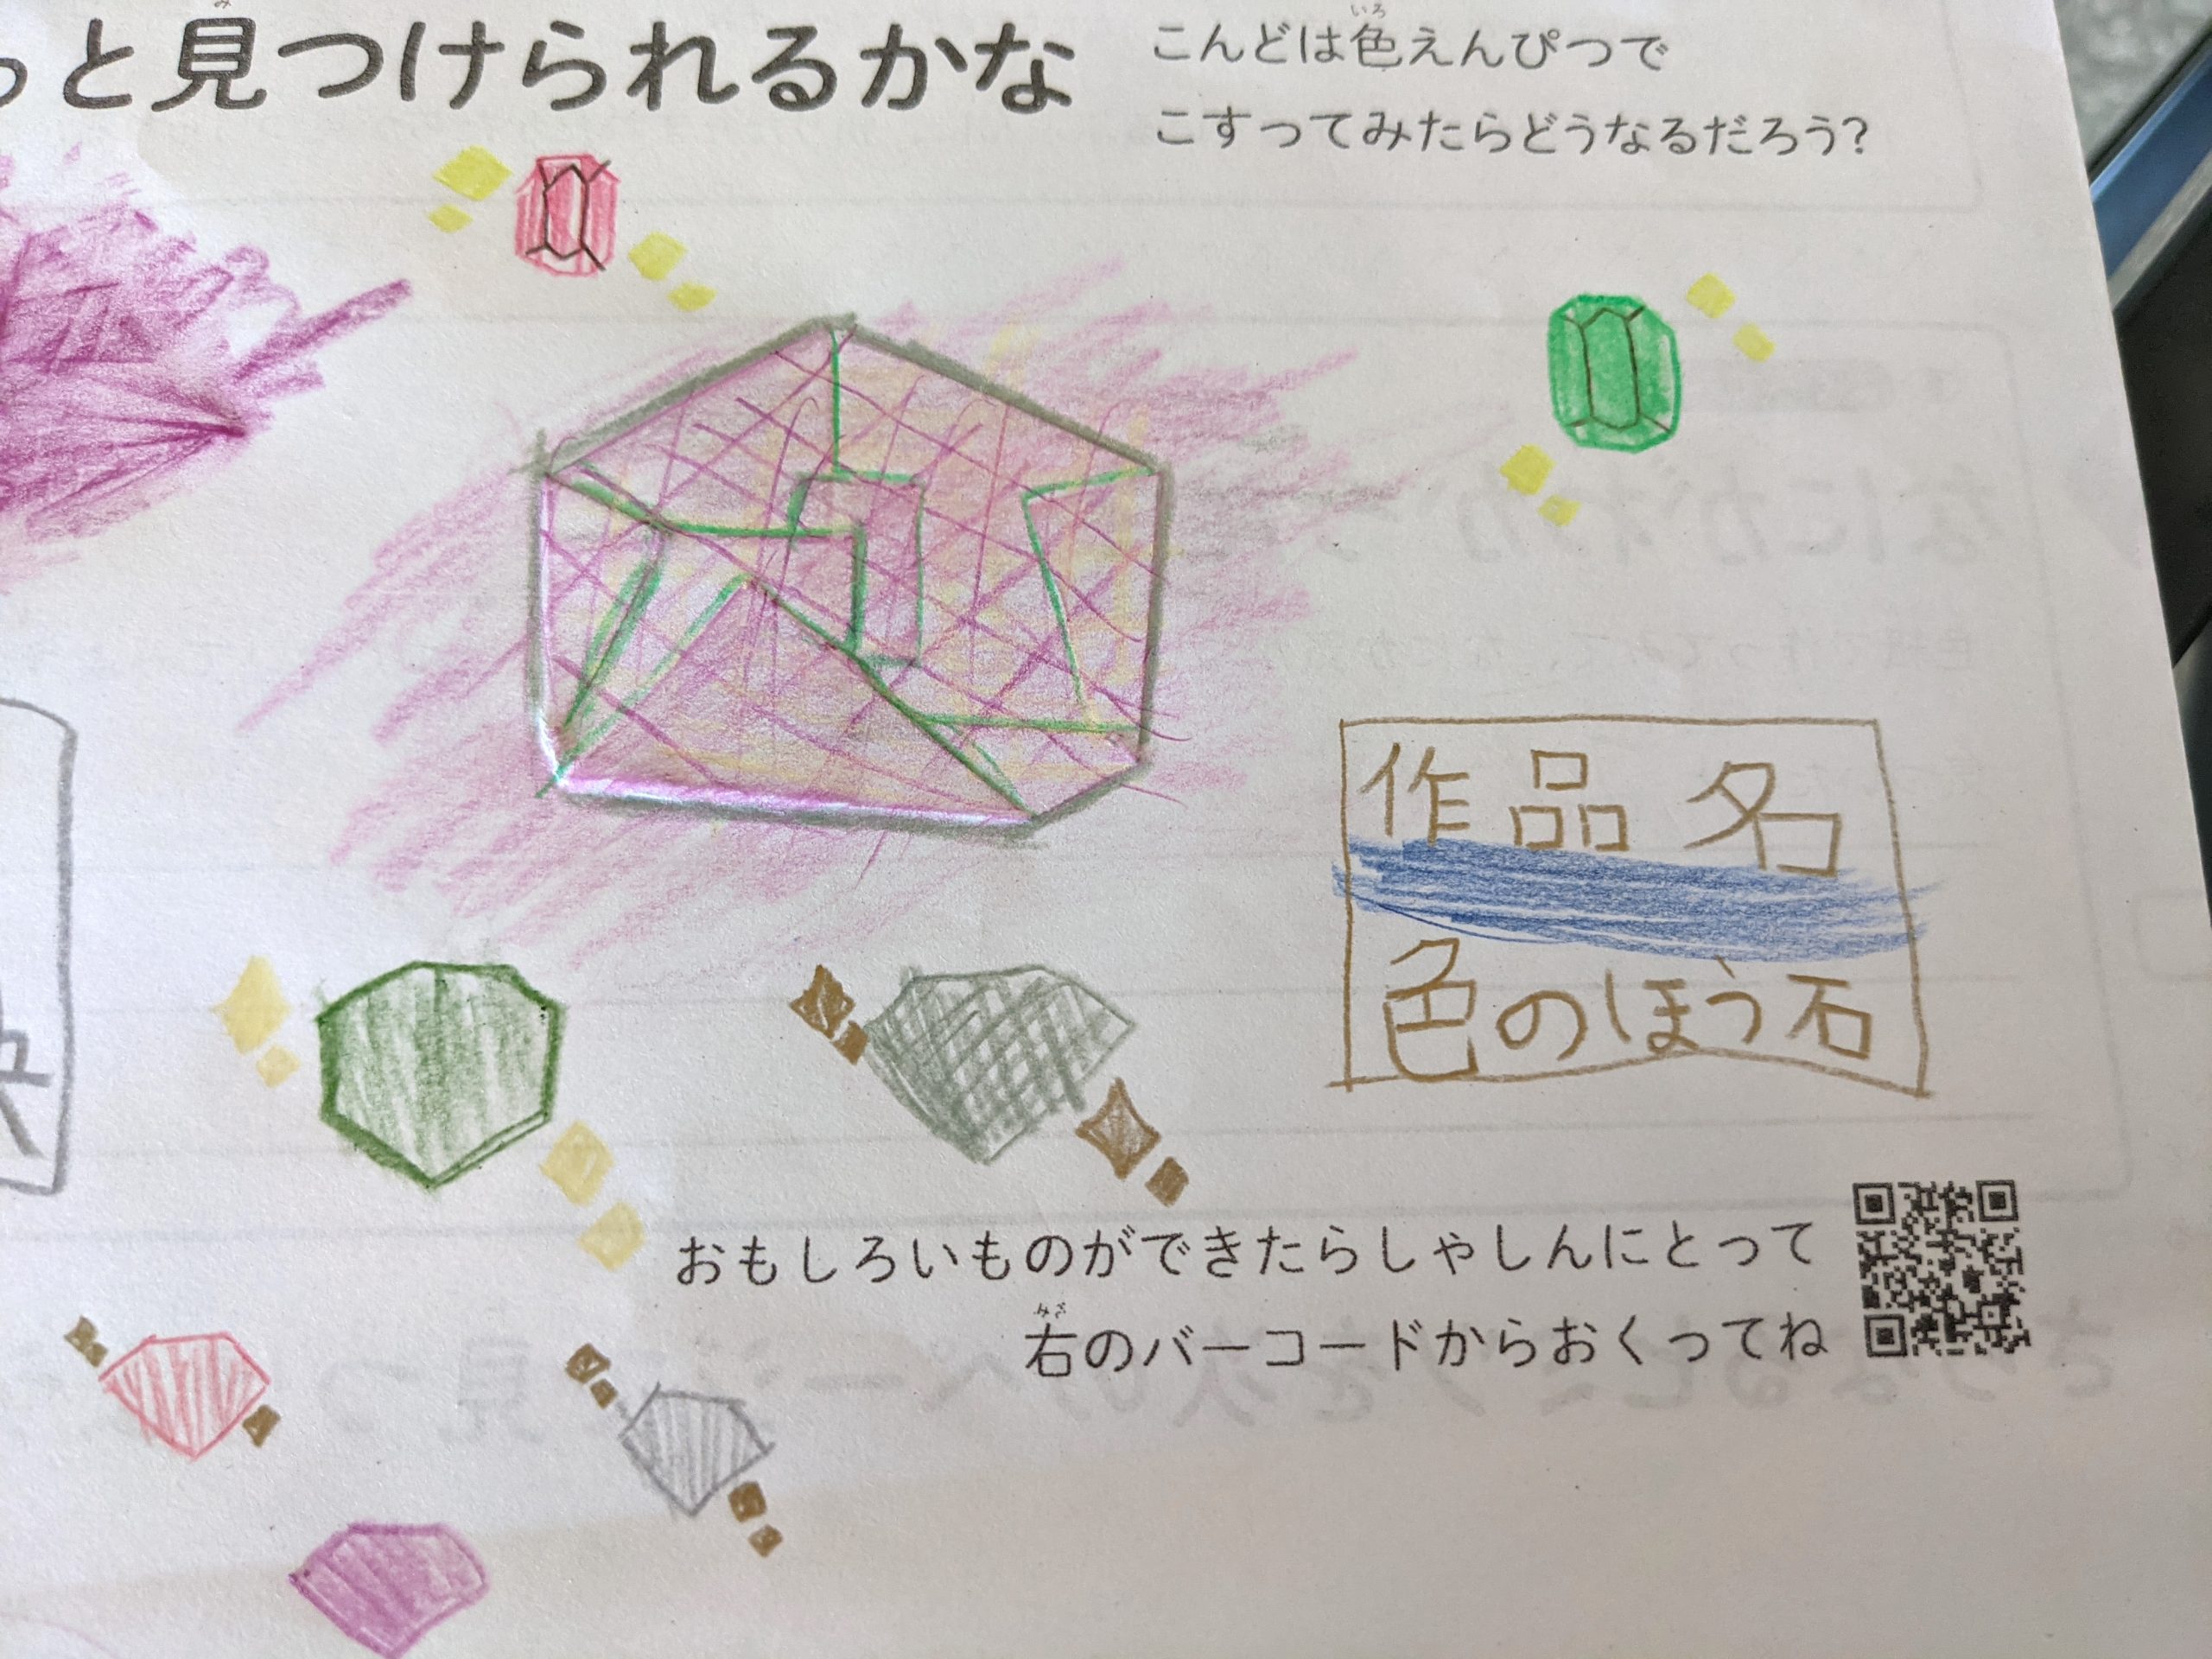 っと見つけられるかな
こんどは色えんぴつで
こすってみたらどうなるだろう?
作品名
色のほう石
おもしろいものができたらしゃしんにとって
右のバーコードからおくってね